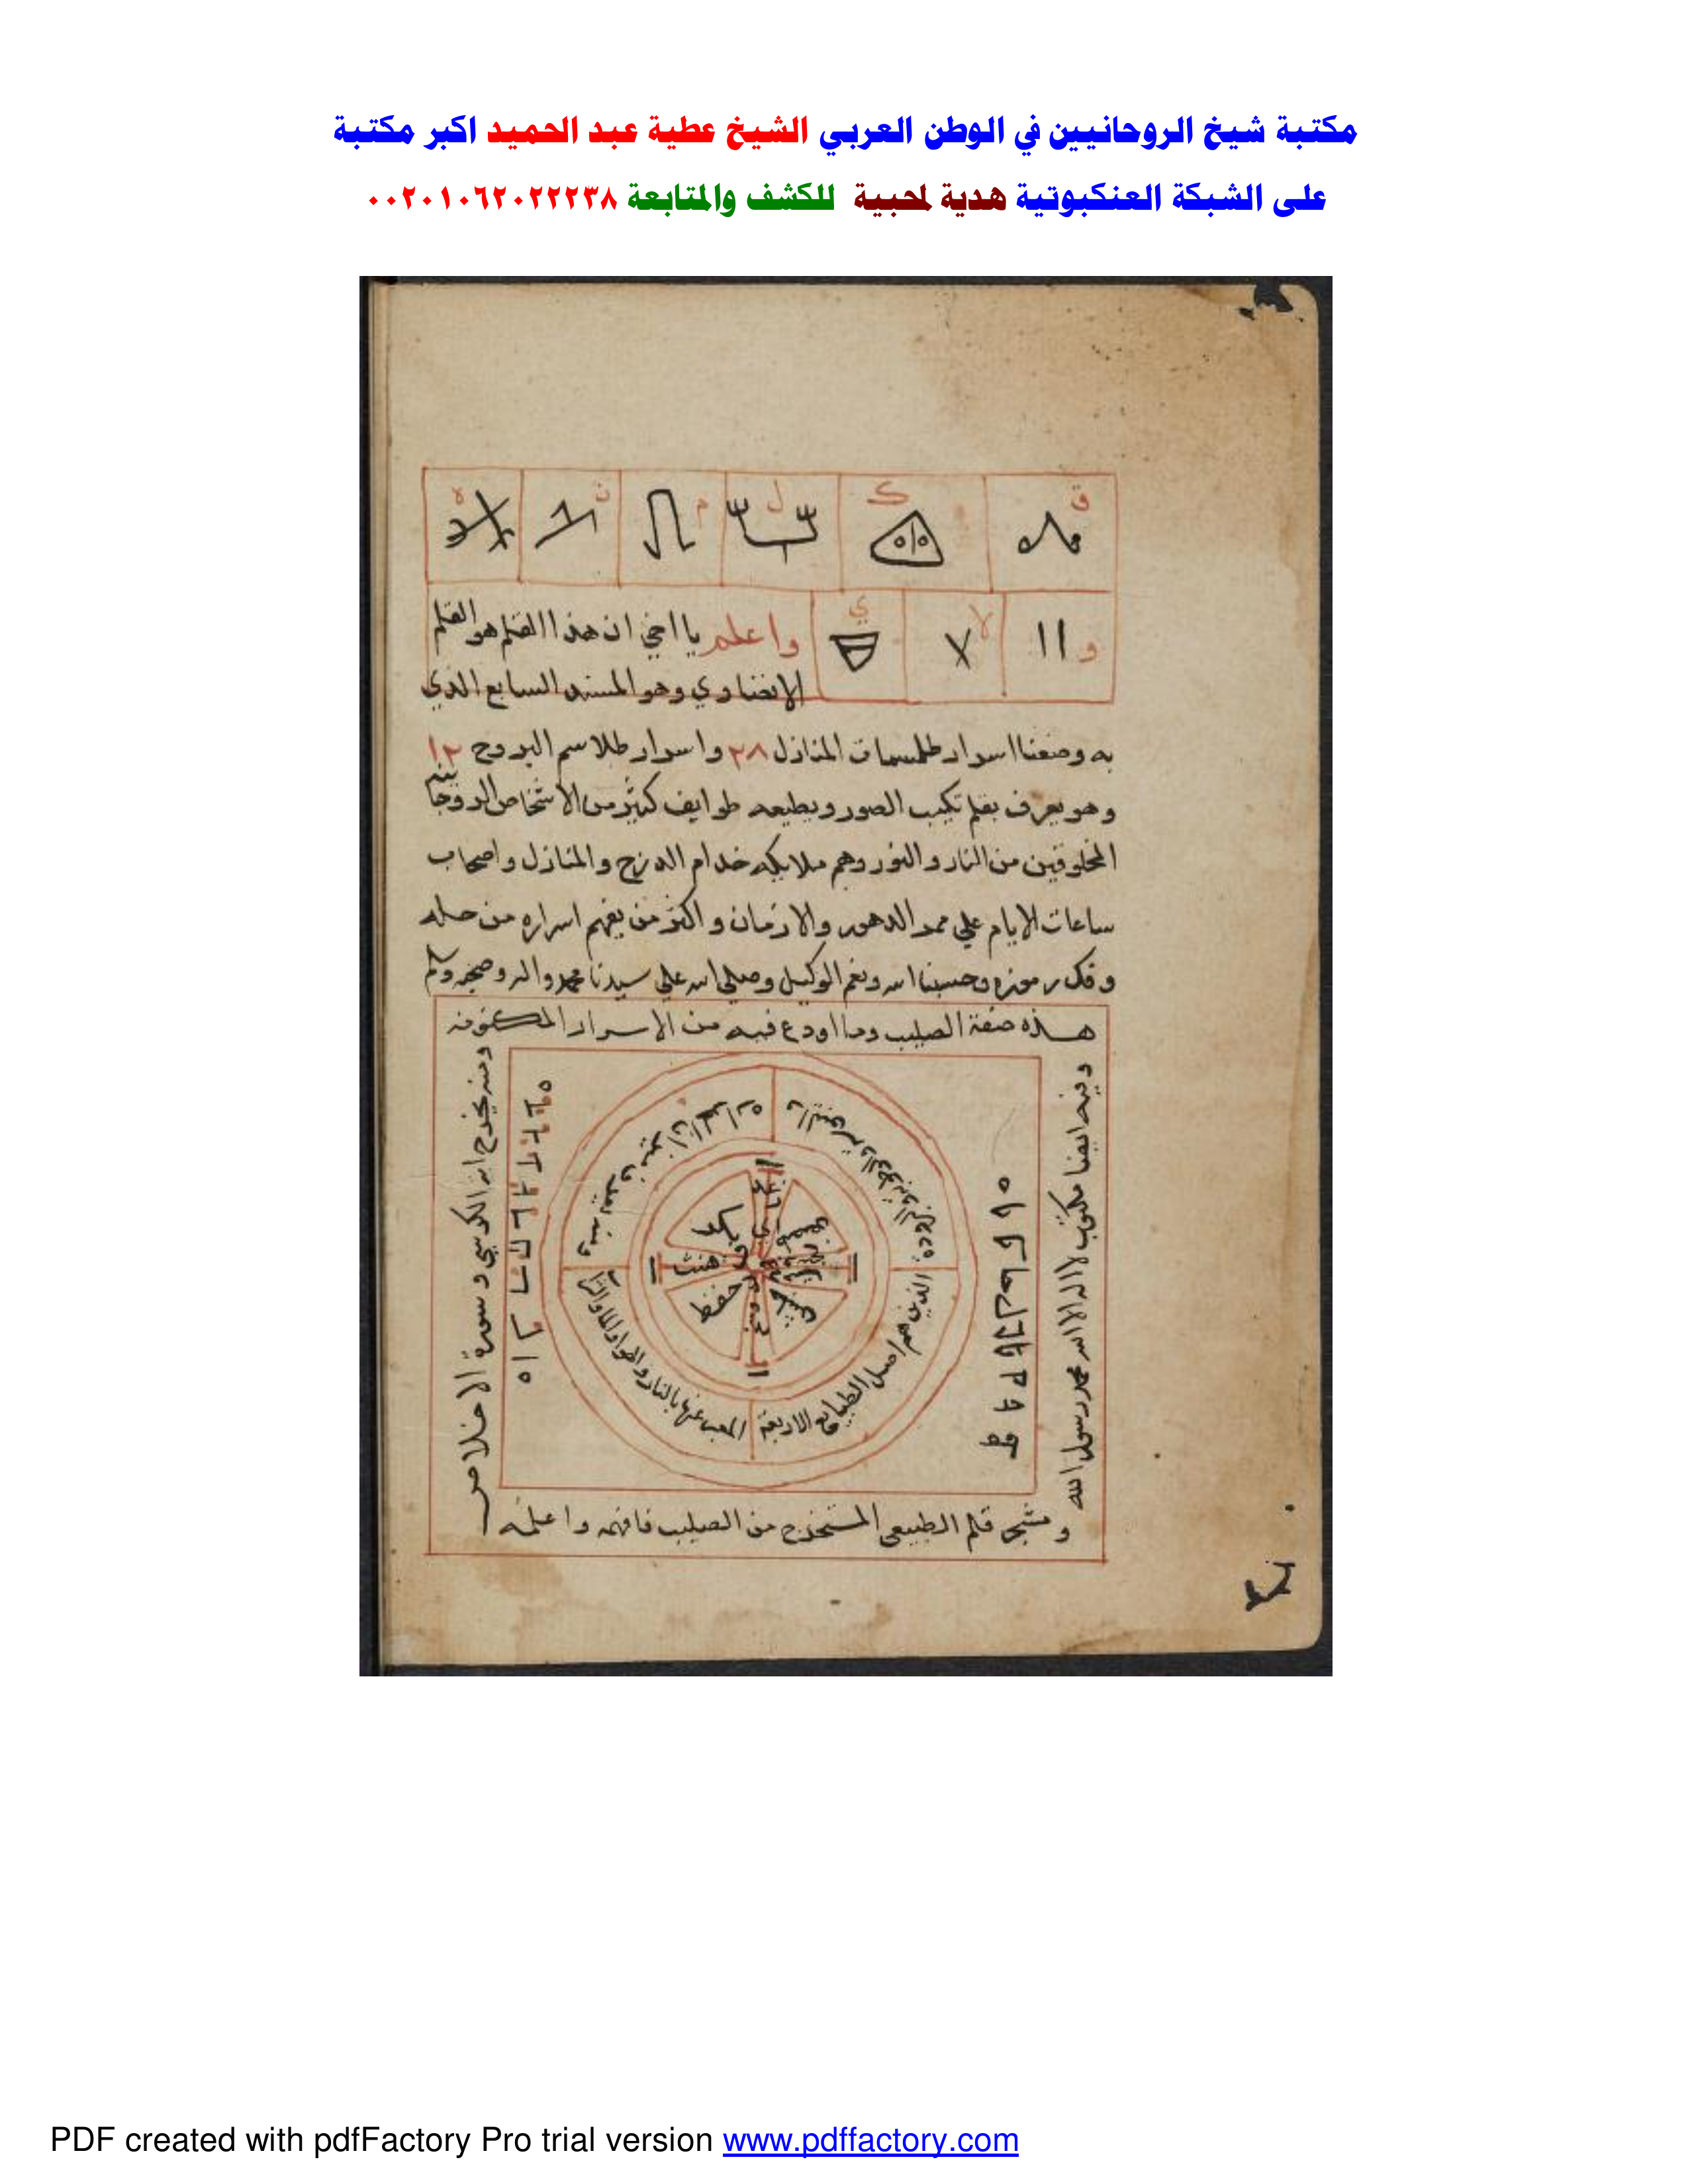 مكتبة شيخ الروحانيين في الوطن العربي الشيخ عطية عبد الحميد اكبر مكتبة
على الشبكة العنكبوتية هدية لمحبية للكشف والمتابعة ٠٠٢٠١٠٦٢٠٢٢٢٣٨
ق ك ل م ن ه
و لا ي
واعلم يا اخي ان هذا القلم هو القلم
وهو المسند السابع الذي
به وضعنا اسرار طلسمات المنازل ٢٨ واسرار طلاسم البروج ١٢
وهو يعرف بقلم تكيب الصور ويطيعه طوايف كثير من الاشخاص الروحانيه
المخلوقين من النار والنور وهم ملايكه خدام الدرج والمنازل واصحاب
ساعات الايام علي ممر الدهور والازمان واكثر من يفهم اسراره من حله
وفك رموزه وحسبنا الله ونعم الوكيل وصلي الله علي سيدنا محمد واله وصحبه وسلم
هذه صفة الصليب وما اودع فيه من الاسرار المكنونه
وفيه ايضا مكتوب لا اله الا الله محمد رسول الله
ومنه يخرج اية الكرسي وسورة الاخلاص
الذين هم اصل الطبايع الاربعة
المعبر عنها بالنار والهوا والما والتراب
بكر
هنث
حفظ
قلم الطبيعي المستخرج من الصليب فافهم واعلمه
PDF created with pdfFactory Pro trial version www.pdffactory.com